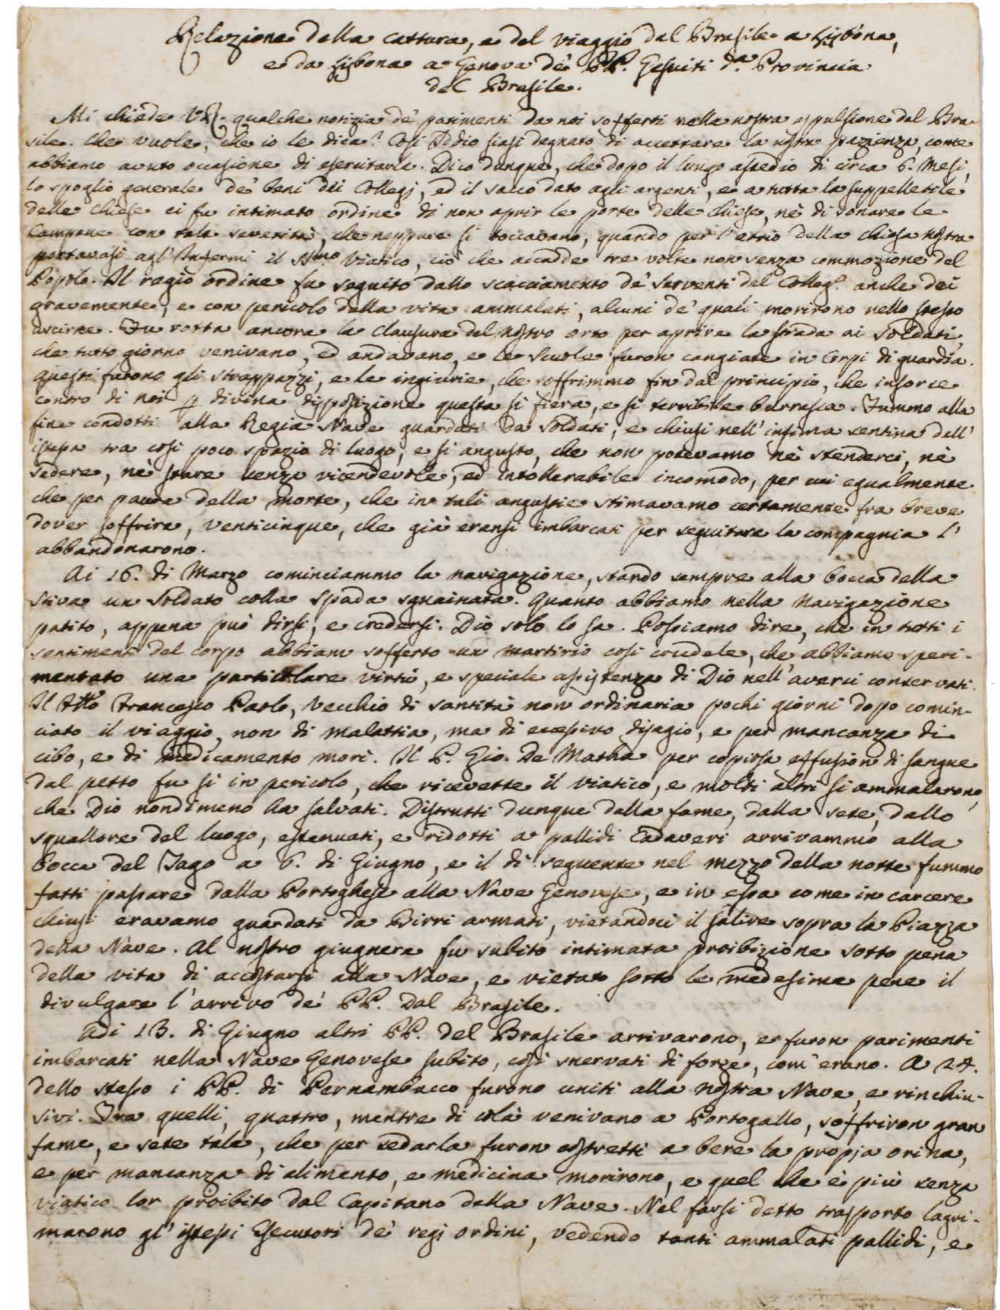 Relazione della cattura, e del viaggio dal Brasile a Lisbona,
e da Lisbona a Genova de' PP. Gesuiti d.ª Provincia
del Brasile.
Mi chiede V.R. qualche notizia de' patimenti da noi sofferti nella nostra espulsione dal Bra-
sile. Che vuole, che io le dica? Così Iddio siasi degnato di accettare la nostra pazienza, come
abbiamo avuto occasione di esercitarla. Dico dunque, che dopo il lungo assedio di circa 6. Mesi,
lo spoglio generale de' beni dei Collegj, ed il sacco dato agli argenti, e a tutta la suppellettile
delle Chiese ci fu intimato ordine di non aprir le porte delle chiese, nè di sonare le
Campane con tale severità, che neppure si toccavano, quando per l'atrio della chiesa nostra
portavasi agl'Infermi il SSmo Viatico, ciò che accadde tre volte non senza commozione del
Popolo. Il regio ordine fu seguito dallo scacciamento de' serventi del Colleg.º anche dei
gravemente, e con pericolo della vita ammalati, alcuni de' quali morirono nello stesso
uscire. Fu rotta ancora la clausura del nostro orto per aprire la strada ai Soldati,
che tutto giorno venivano, ed andavano, e le Scuole furon cangiate in Corpi di guardia.
Questi furono gli strappazzi, e le ingiurie, che soffrimmo fin dal principio, che insorse
contro di noi p divina disposizione questa sì fiera, e sì terribile burrasca. Fummo alla
fine condotti alla Regia Nave guardati da Soldati, e chiusi nell'infima sentina dell'
istessa tra così poco spazio di luogo, e sì angusto, che non potevamo nè stenderci, nè
sedere, nè stare senza vicendevole, ed intollerabile incomodo, per cui egualmente
che per paura della morte, che in tali angustie stimavamo certamente fra breve
dover soffrire, venticinque, che già eransi imbarcati per seguitare la compagnia l'
abbandonarono.
Ai 16. di Marzo cominciammo la navigazione, stando sempre alla bocca della
stiva un Soldato colla spada sguainata. Quanto abbiamo nella Navigazione
patito, appena può dirsi, e credersi. Dio solo lo sa. Possiamo dire, che in tutti i
sentimenti del corpo abbiam sofferto un martirio così crudele, che abbiamo speri-
mentato una particolare virtù, e speciale assistenza di Dio nell'averci conservati.
Il Francesco Paolo, vecchio di santità non ordinaria pochi giorni dopo comin-
ciato il viaggio, non di malattia, ma di eccessivo disagio, e per mancanza di
cibo, e di medicamento morì. Il P. Gio. De Matha per copiosa effusion di sangue
dal petto fu sì in pericolo, che ricevette il viatico, e molti altri si ammalarono,
che Dio nondimeno ha salvati. Distrutti dunque dalla fame, dalla sete, dallo
squallore del luogo, estenuati, e ridotti a pallidi Cadaveri arrivammo alla
Bocca del Tago a 6. di Giugno, e il dì seguente nel mezzo della notte fummo
fatti passare dalla Portoghese alla Nave Genovese, e in essa come in carcere
chiusi eravamo guardati da Birri armati, vietandoci il salire sopra la Piazza
della Nave. Al nostro giugnere fu subito intimata proibizione sotto pena
della vita di accostarsi alla Nave, e vietato sotto le medesima pene il
divulgare l'arrivo de' PP. dal Brasile.
Adi 13. di Giugno altri PP. del Brasile arrivarono, e furon parimenti
imbarcati nella Nave Genovese subito, così snervati di forze, com'erano. A 24.
dello stesso i PP. di Pernambucco furono uniti alla nostra Nave, e rinchiu-
sivi. Fra quelli, quattro, mentre di colà venivano a Portogallo, soffriron gran
fame, e sete tale, che per sedarla furon costretti a bere la propja orina,
e per mancanza di alimento, e medicina morirono, e quel che è più senza
viatico lor proibito dal Capitano della Nave. Nel farsi detto trasporto lagri-
marono gl'istessi Esecutori de' regj ordini, vedendo tanti ammalati pallidi, e